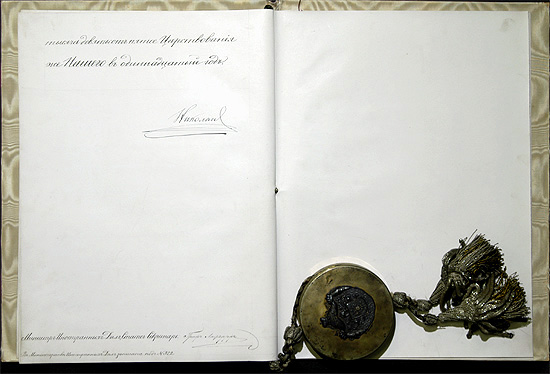 тысяча девятьсотъ пятое Царствованія
же Нашего въ одиннадцатый годъ
Николай
Министръ Иностранныхъ Делъ, Статсъ-Секретарь Графъ
Въ Министерстве Иностранныхъ Делъ